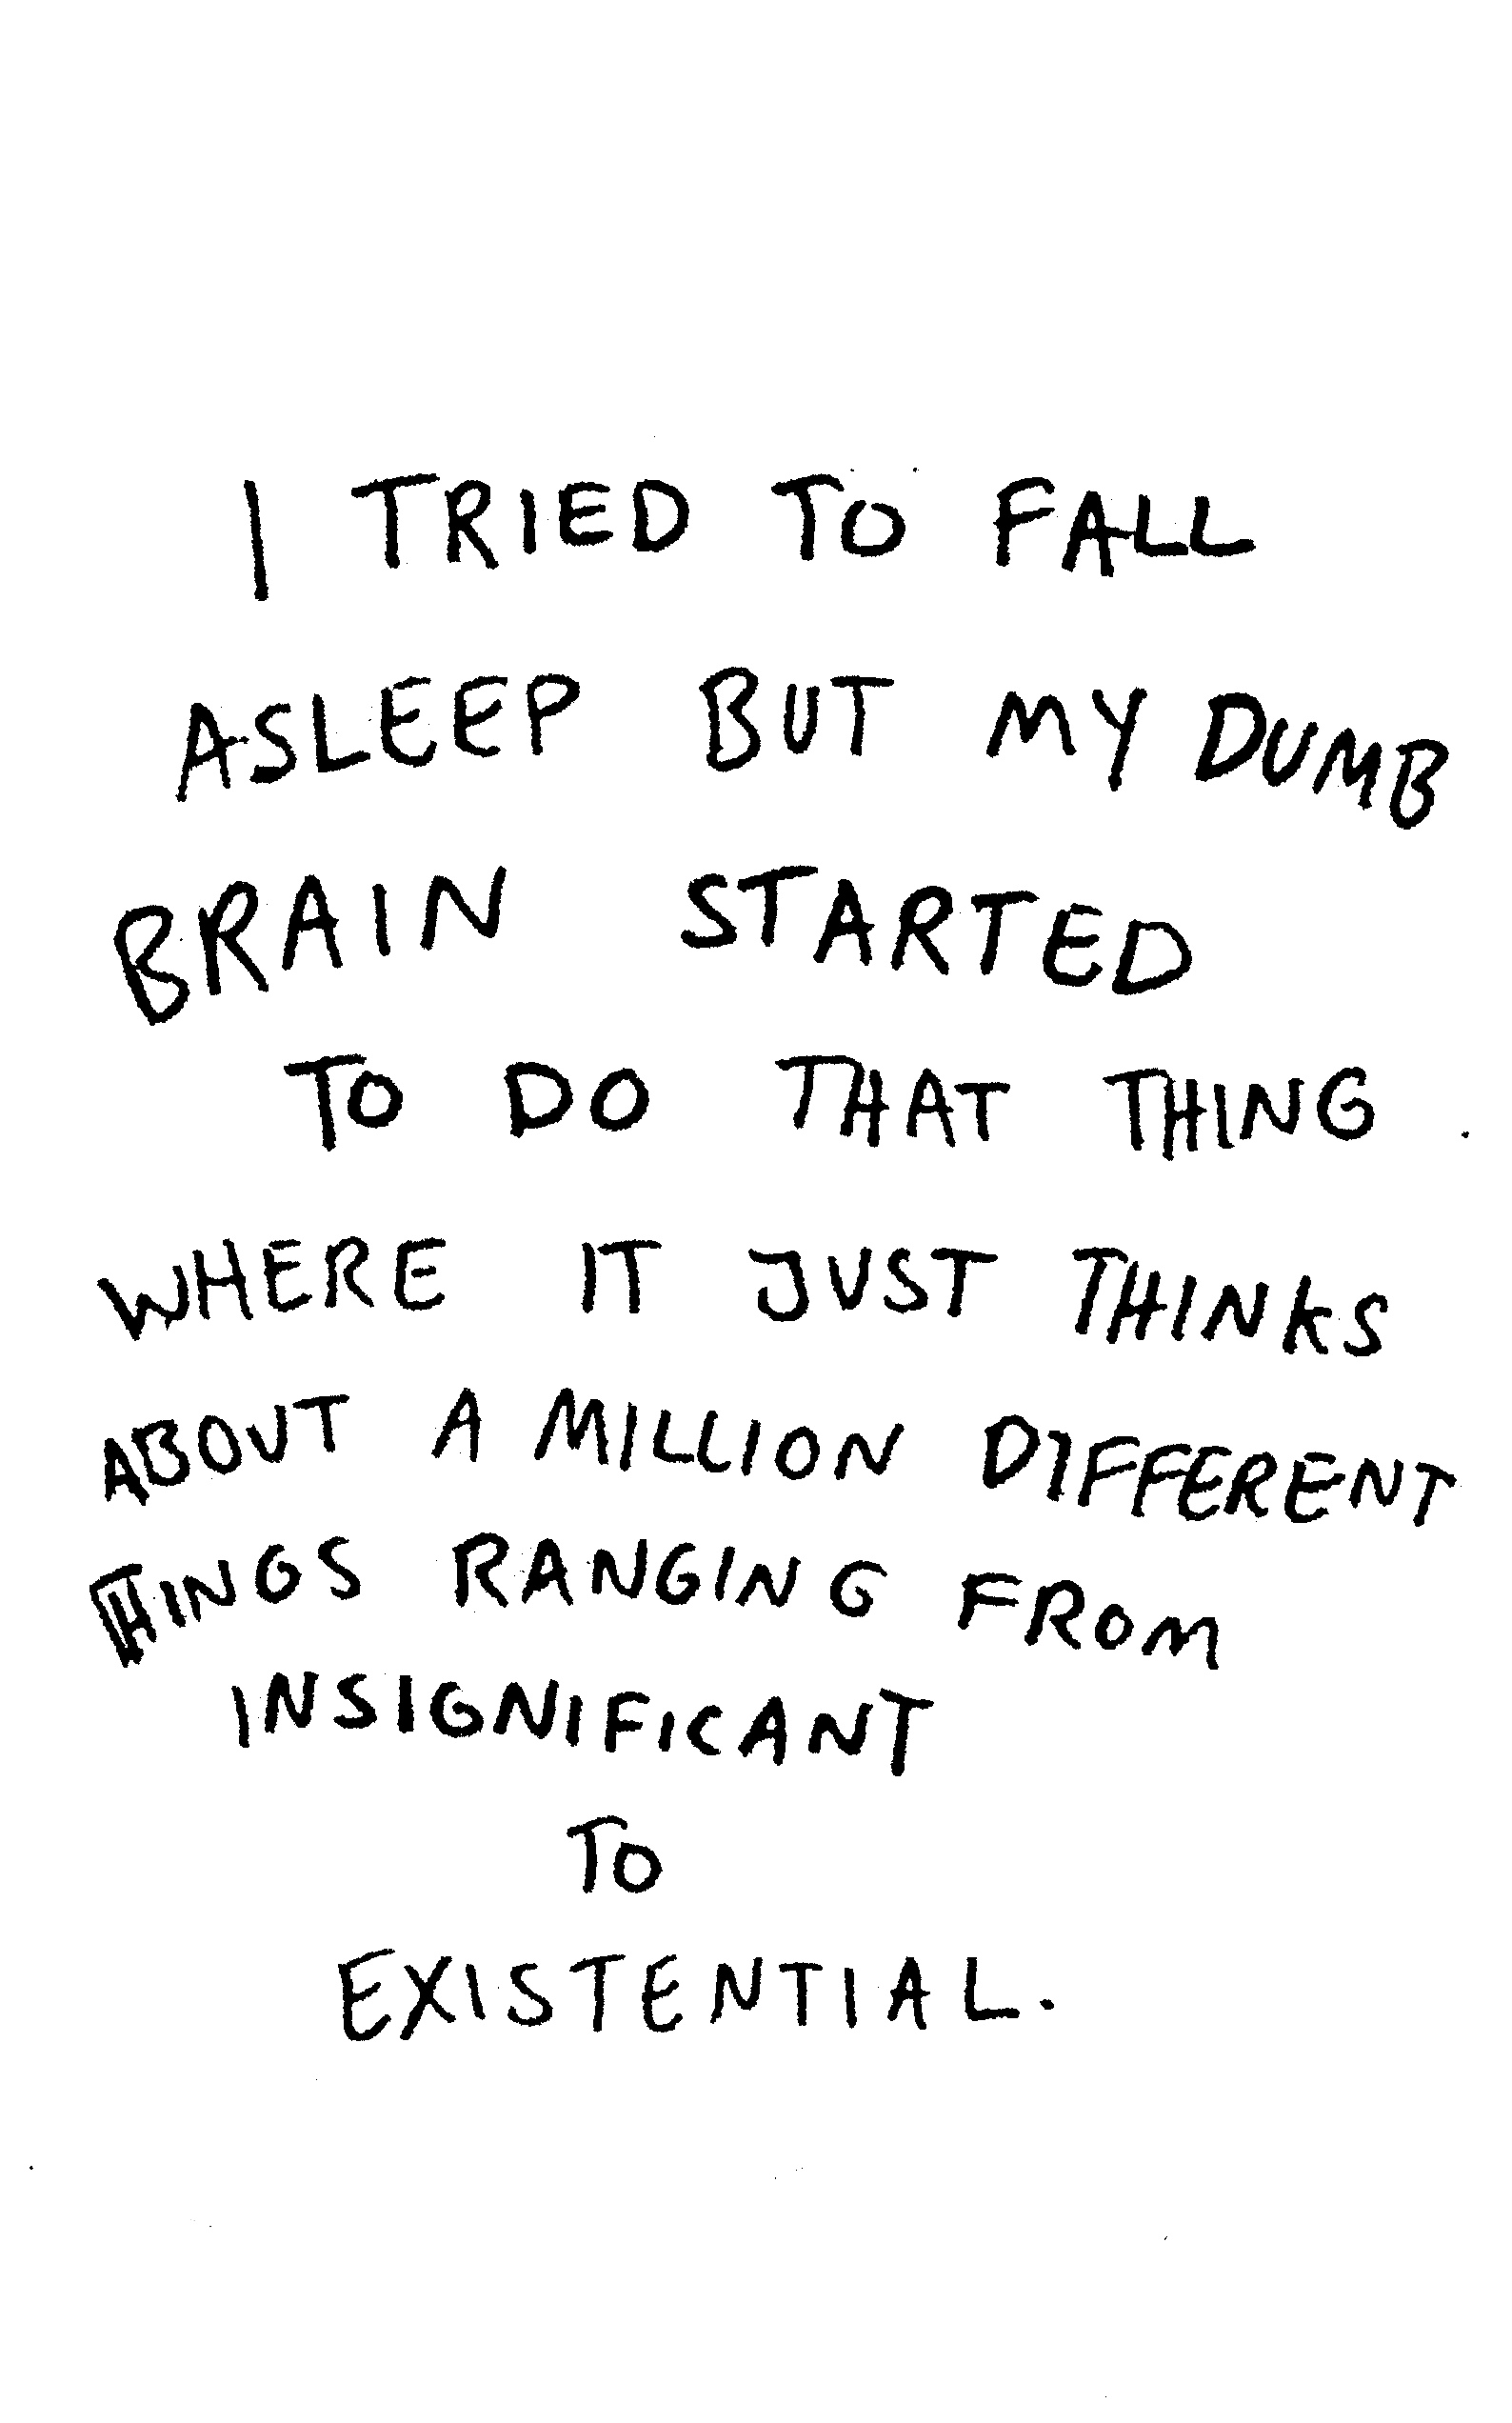 I TRIED TO FALL
ASLEEP BUT MY DUMB
BRAIN STARTED
TO DO THAT THING
WHERE IT JUST THINKS
ABOUT A MILLION DIFFERENT
THINGS RANGING FROM
INSIGNIFICANT
TO
EXISTENTIAL.